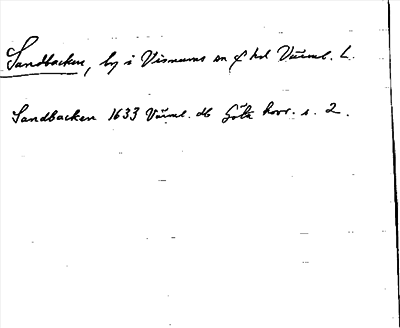 Sandbacken, by i Visnums sn o hd Värml. L.
Sandbacken 1633 Värml. db Göta hovr. s. 2.